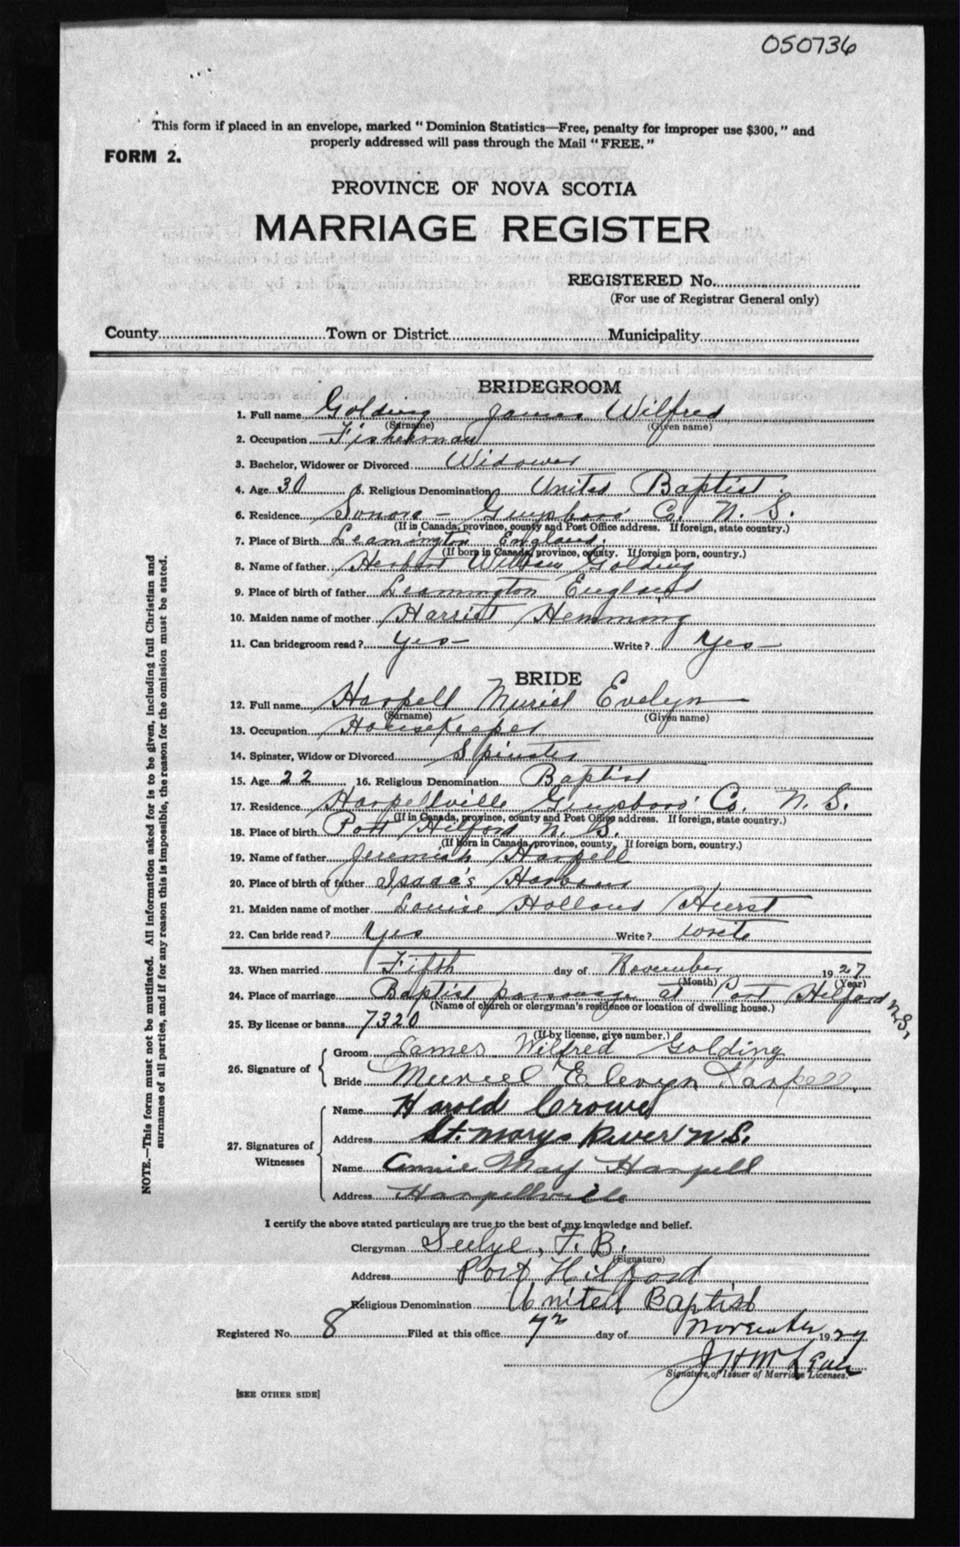 050736
This form if placed in an envelope, marked "Dominion Statistics—Free, penalty for improper use $300," and
properly addressed will pass through the Mail "FREE."
FORM 2.
PROVINCE OF NOVA SCOTIA
MARRIAGE REGISTER
REGISTERED No.
(For use of Registrar General only)
County Town or District Municipality
BRIDEGROOM
1. Full name Golding James Wilfred
(Surname) (Given name)
2. Occupation Fisherman
3. Bachelor, Widower or Divorced Widower
4. Age 30 5. Religious Denomination United Baptist
6. Residence Sonora – Guysboro Co. N. S.
(If in Canada, province, county and Post Office address. If foreign, state country.)
7. Place of Birth Leamington England
(If born in Canada, province, county. If foreign born, country.)
8. Name of father Herbert William Golding
9. Place of birth of father Leamington England
10. Maiden name of mother Harriet Hemming
11. Can bridegroom read? Yes – Write? Yes –
BRIDE
12. Full name Harpell Muriel Evelyn
(Surname) (Given name)
13. Occupation Housekeeper
14. Spinster, Widow or Divorced Spinster
15. Age 22 16. Religious Denomination Baptist
17. Residence Harpellville Guysboro Co. N. S.
(If in Canada, province, county and Post Office address. If foreign, state country.)
18. Place of Birth Port Hilford N. S.
(If born in Canada, province, county. If foreign born, country.)
19. Name of father Jeremiah Harpell
20. Place of birth of father Isaac's Harbour
21. Maiden name of mother Louise Holland Hurst
22. Can bride read? Yes Write? write
23. When married Fifth day of November 1927
(Month) (Year)
24. Place of marriage Baptist parsonage at Port Hilford N.S,
(Name of church or clergyman's residence or location of dwelling house.)
25. By license or banns 7320
(If by license, give number.)
26. Signature of
Groom James Wilfred Golding
Bride Muriel Evelyn Harpell.
27. Signatures of
Witnesses
Name Harold Crowe
Address St. Marys River N S.
Name Annie May Harpell
Address Harpellville
I certify the above stated particulars are true to the best of my knowledge and belief.
Clergyman F. B.
(Signature)
Address Port Hilford
Religious Denomination United Baptist
Registered No. 8 Filed at this office day of November 1927
J H McLean
Signature of Issuer of Marriage Licenses.
[SEE OTHER SIDE]
NOTE.—This form must not be mutilated. All information asked for is to be given, including full Christian and
surnames of all parties, and if for any reason this is impossible, the reason for the omission must be stated.